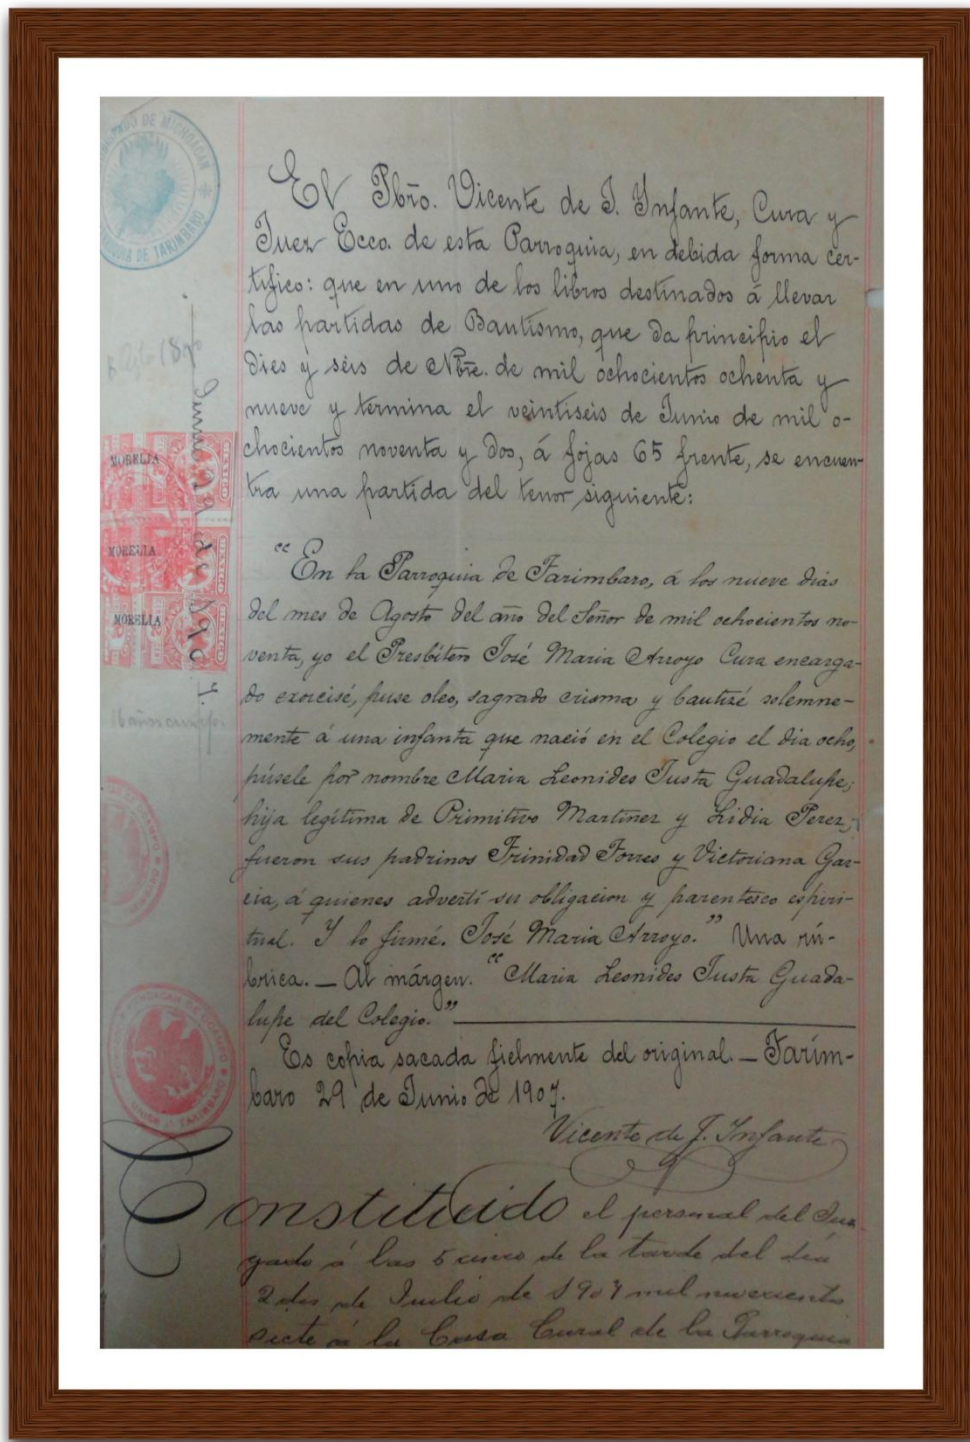 El Pbro. Vicente de J. Infante, Cura y
Juez Ecco. de esta Parroquia, en debida forma cer-
tifico: que en uno de los libros destinados á llevar
las partidas de Bautismo, que da principio el
dies y seis de Nbre. de mil ochocientos ochenta y
nueve y termina el veintiseis de Junio de mil o-
chocientos noventa y dos, á fojas 65 frente, se encuen-
tra una partida del tenor siguiente:
"En la Parroquia de Tarimbaro, á los nueve dias
del mes de Agosto del año del Señor de mil ochocientos no-
venta, yo el Presbítero José Maria Arroyo Cura encarga-
do exorcisé, puse oleo, sagrado crisma y bautizé solemne-
mente á una infanta que nació en el Colegio el dia ocho,
púsele por nombre Maria Leonides Justa Guadalupe;
hija legítima de Primitivo Martinez y Lidia Perez;
fueron sus padrinos Trinidad Torres y Victoriana Gar-
cia, á quienes advertí su obligacion y parentesco espiri-
tual. Y lo firmé. José Maria Arroyo." Una rú-
brica. — Al márgen. "Maria Leonides Justa Guada-
lupe del Colegio."
Es copia sacada fielmente del original. — Tarím-
baro 29 de Junio de 1907.
Vicente de J. Infante
Constituido el personal del Juz
gado á las 5 cinco de la tarde del dia
2 dos de Julio de 1907 mil novecientos
siete á la Casa Cural de la Parroquia
DE MICHOACAN
DE TARIMBARO
Junio 29 de 1907.
MORELIA
MEXICO
MORELIA
MEXICO
MORELIA
MEXICO
TARIMBARO